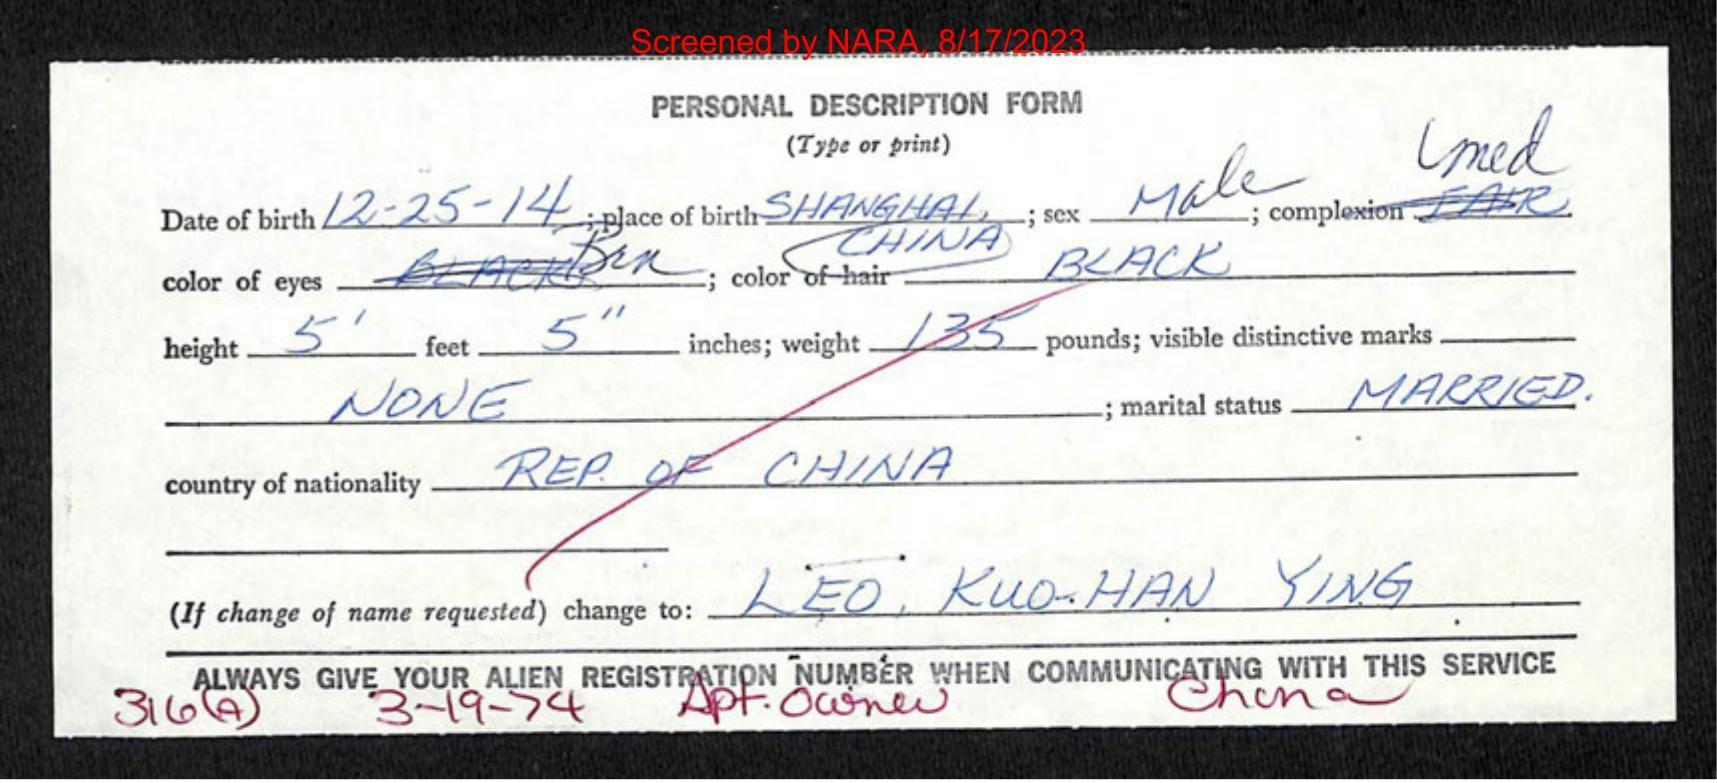 Screened by NARA, 8/17/2023
PERSONAL DESCRIPTION FORM
(Type or print)
med
Date of birth 12-25-14 ; place of birth SHANGHAI, ; sex Male ; complexion FAIR
CHINA
color of eyes BLACK Brn ; color of hair BLACK
height 5' feet 5" inches; weight 135 pounds; visible distinctive marks
NONE ; marital status MARRIED.
country of nationality REP. OF CHINA
(If change of name requested) change to: LEO, KUO-HAN YING
ALWAYS GIVE YOUR ALIEN REGISTRATION NUMBER WHEN COMMUNICATING WITH THIS SERVICE
316(A) 3-19-74 Apt. Owner China